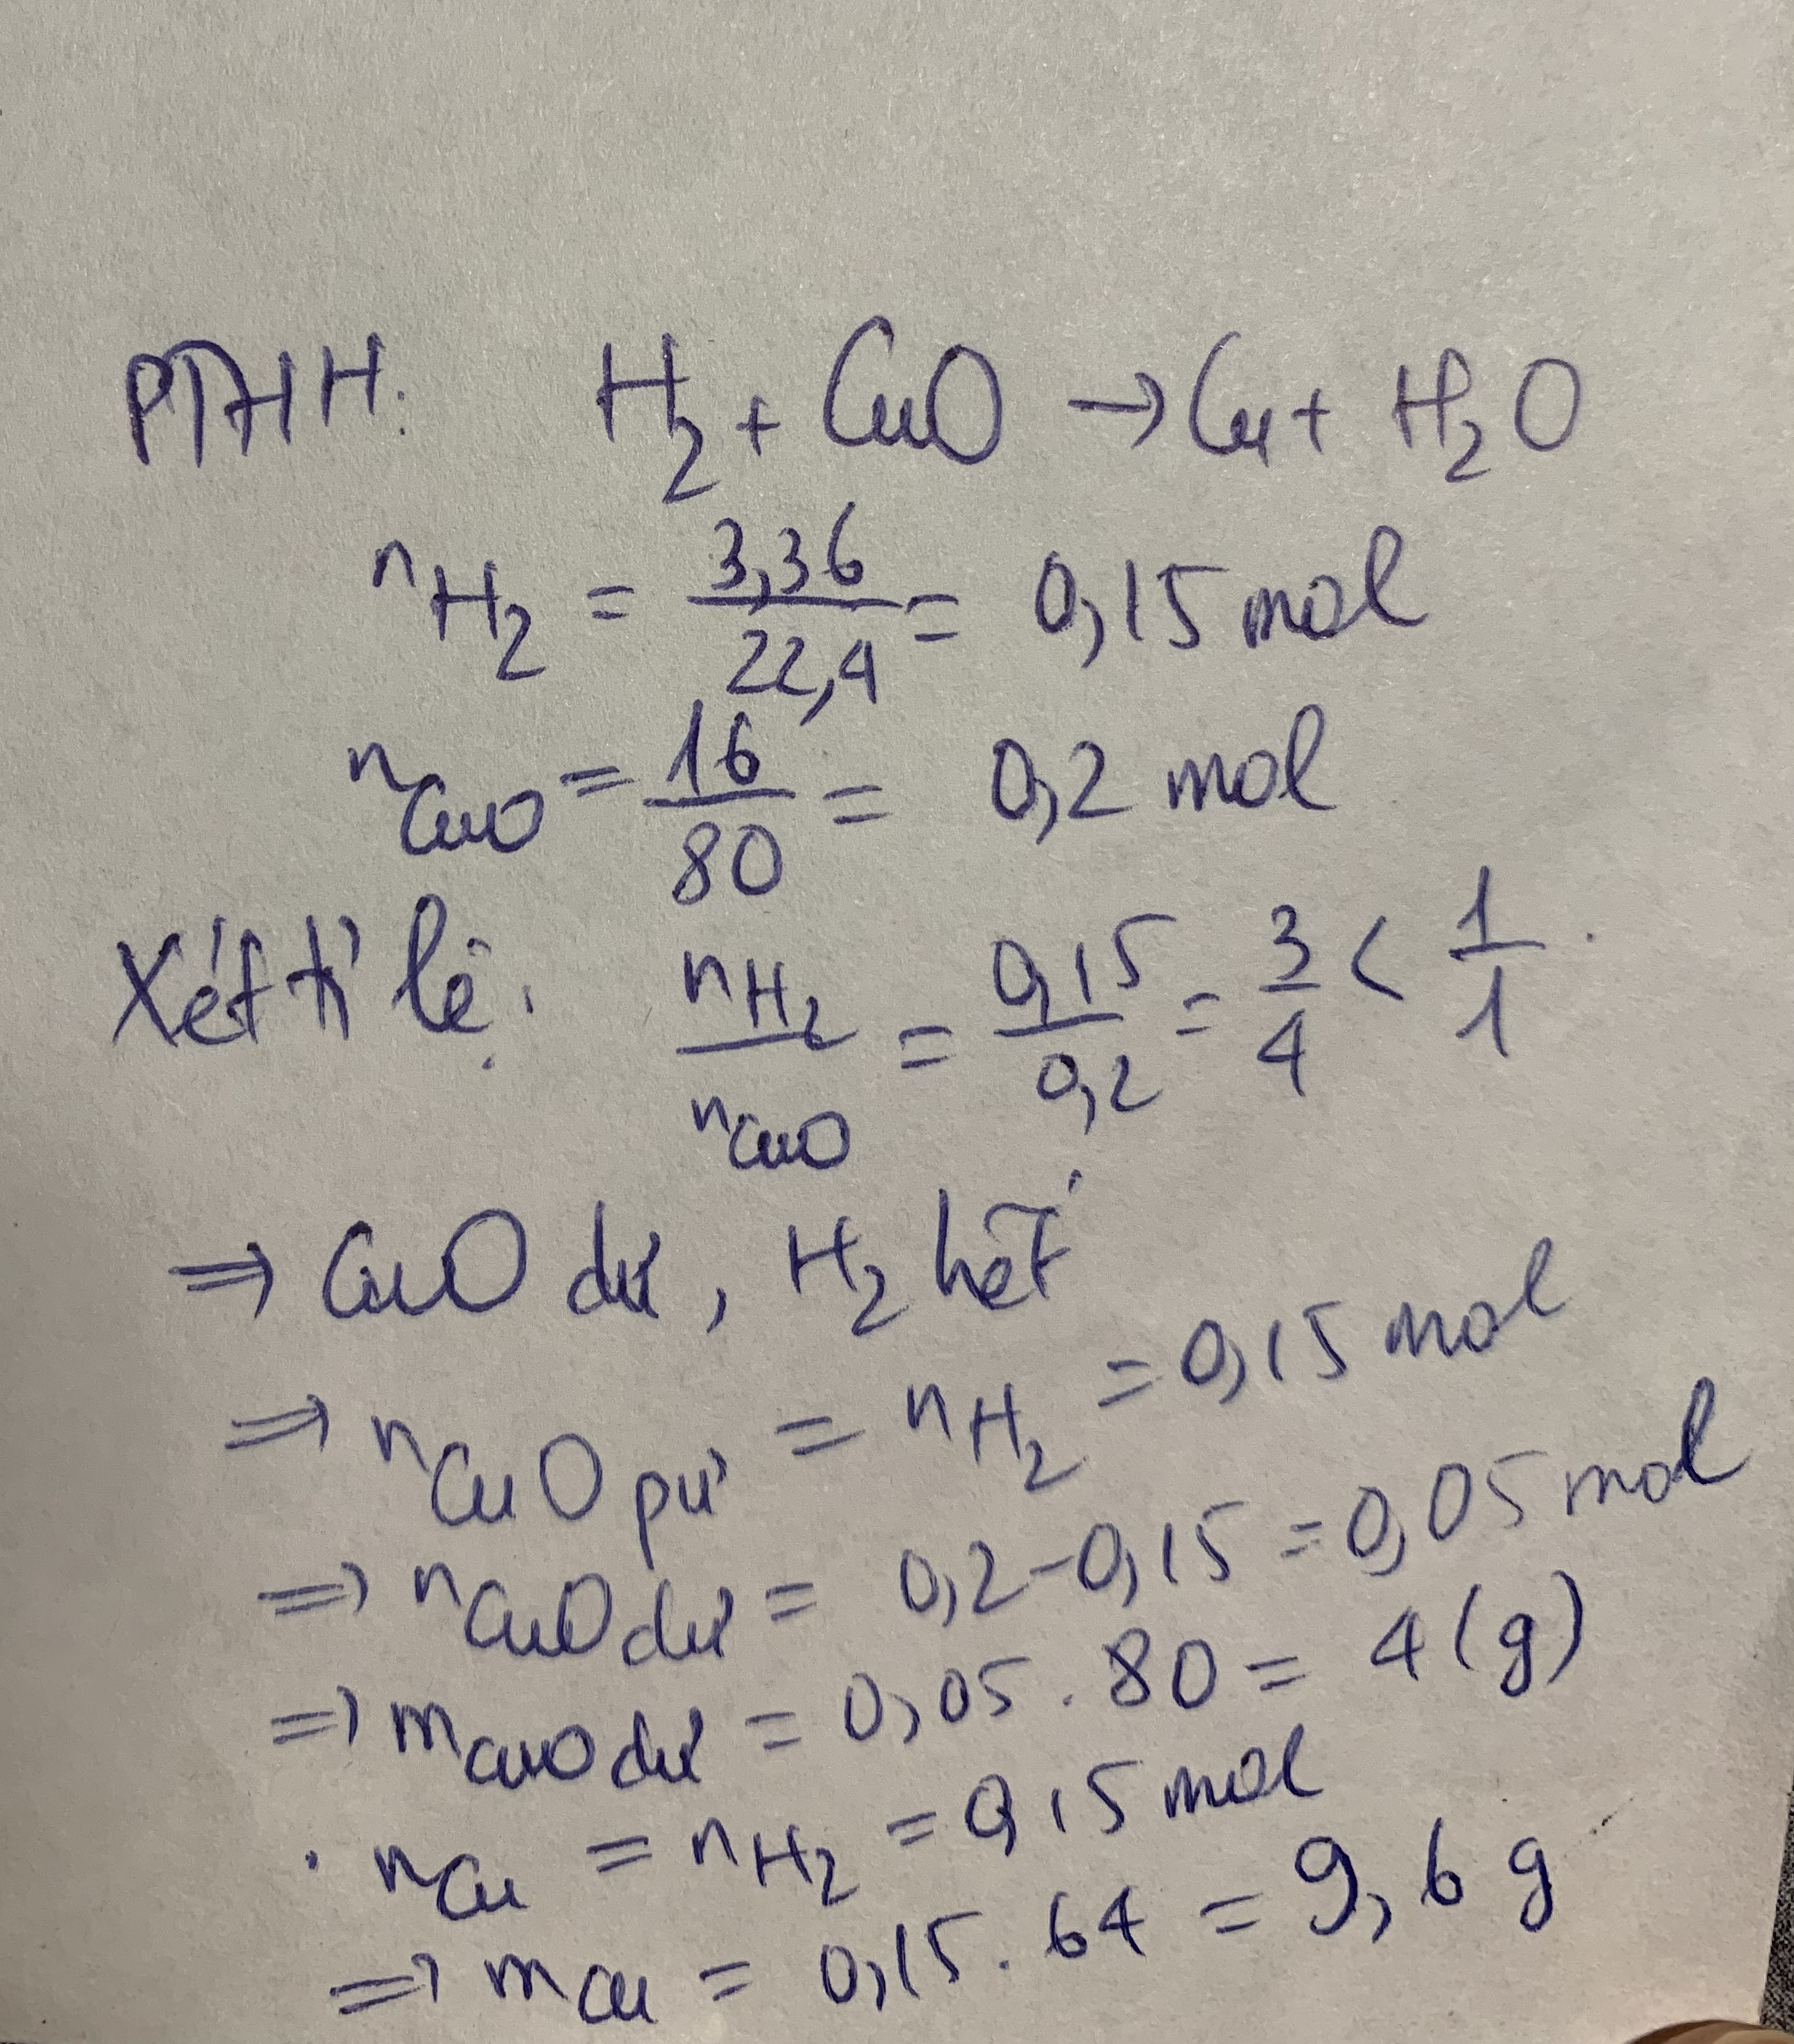 PTHH: H₂ + CuO → Cu + H₂O
nH₂ = 3,36/22,4 = 0,15 mol
nCuO = 16/80 = 0,2 mol
Xét tỉ lệ: nH₂/nCuO = 0,15/0,2 = 3/4 < 1/1
⇒ CuO dư, H₂ hết
⇒ nCuO pư = nH₂ = 0,15 mol
⇒ nCuO dư = 0,2 - 0,15 = 0,05 mol
⇒ mCuO dư = 0,05 . 80 = 4 (g)
. nCu = nH₂ = 0,15 mol
⇒ mCu = 0,15 . 64 = 9,6 g